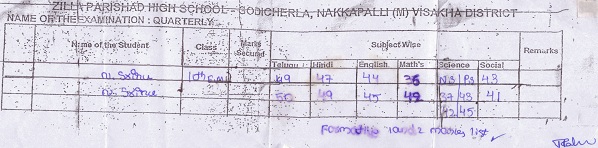 ZILLA PARISHAD HIGH SCHOOL - GODICHERLA, NAKKAPALLI (M) VISAKHA DISTRICT
NAME OF THE EXAMINATION : QUARTERLY
Name of the Student Class Marks Secured Subject Wise Remarks
Telugu Hindi English Math's Science Social
10th 69 47 44 36 43
50 49 45 49 37/48 41
42/45
Formative 1 and 2 marks list